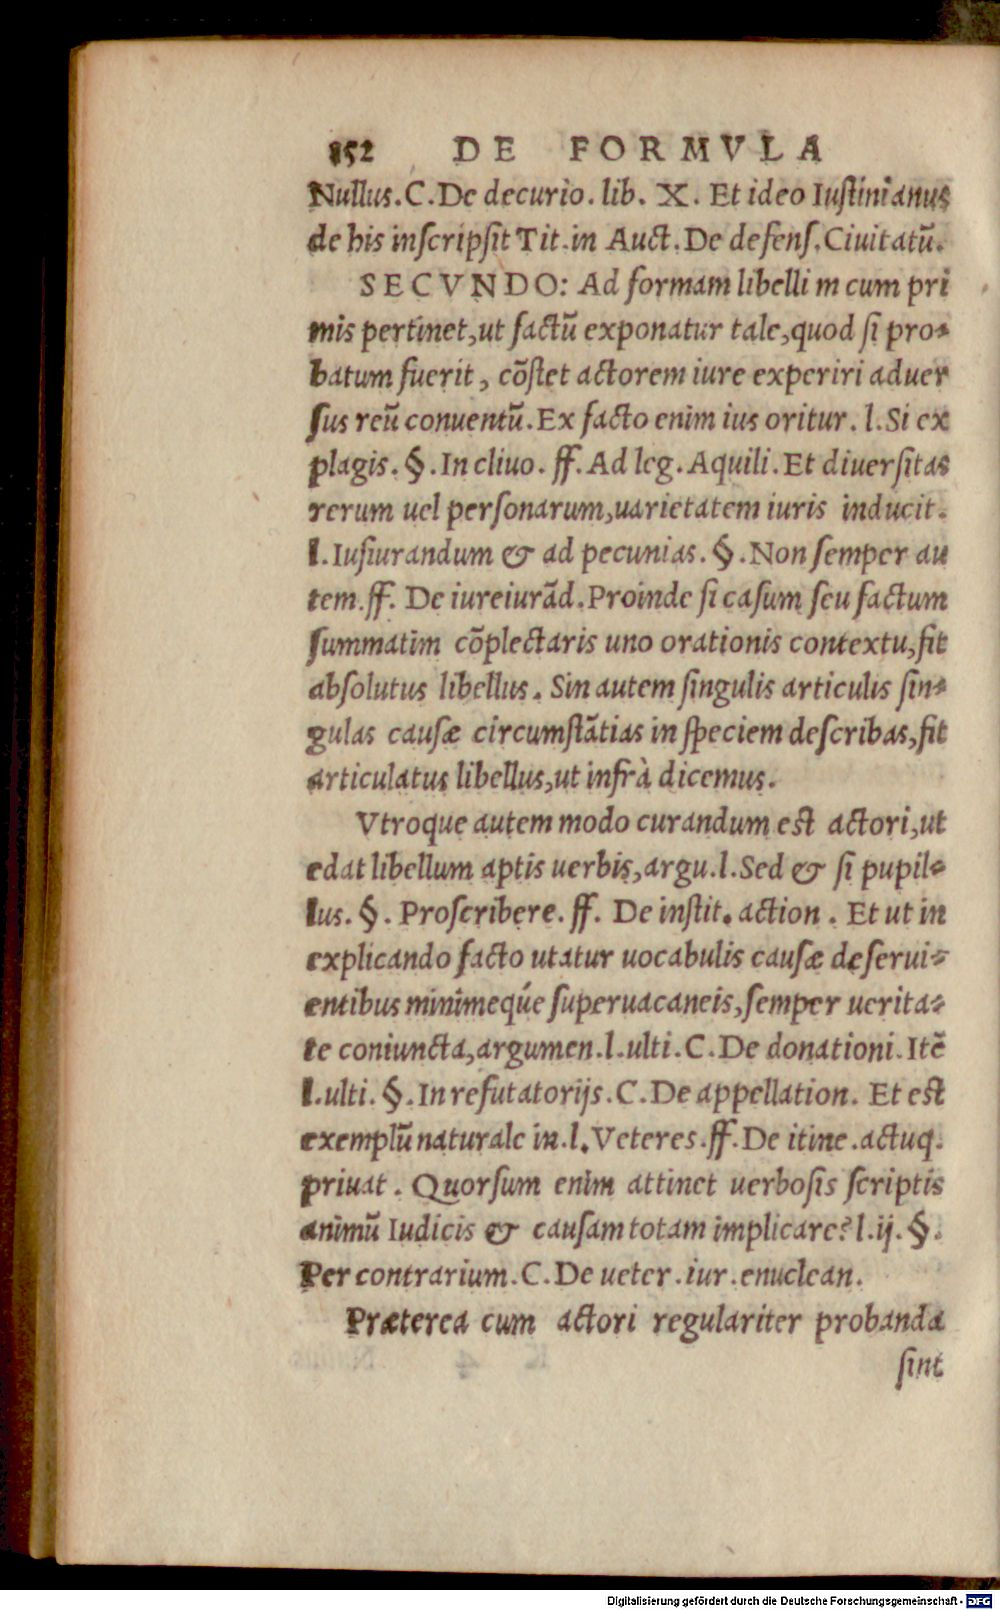 152 DE FORMVLA
Nullus. C. De decurio. lib. X. Et ideo Iustinianus
de his inscripsit Tit. in Auct. De defens. Ciuitatū.
SECVNDO: Ad formam libelli in cum pri
mis pertinet, ut factū exponatur tale, quod si pro-
batum fuerit, cōstet actorem iure experiri aduer
sus reū conuentū. Ex facto enim ius oritur. l. Si ex
plagis. §. In cliuo. ff. Ad leg. Aquili. Et diuersitas
rerum uel personarum, uarietatem iuris inducit.
l. Iusiurandum & ad pecunias. §. Non semper au
tem. ff. De iureiurād. Proinde si casum seu factum
summatim cōplectaris uno orationis contextu, fit
absolutus libellus. Sin autem singulis articulis sin-
gulas causæ circumstātias in speciem describas, fit
articulatus libellus, ut infrà dicemus.
Vtroque autem modo curandum est actori, ut
edat libellum aptis uerbis, argu. l. Sed & si pupil-
lus. §. Proscribere. ff. De instit. action. Et ut in
explicando facto utatur uocabulis causæ deserui-
entibus minimeqúe superuacaneis, semper uerita-
te coniuncta, argumen. l. ulti. C. De donationi. Itē
l. ulti. §. In refutatorijs. C. De appellation. Et est
exemplū naturale in. l. Veteres. ff. De itine. actuq.
priuat. Quorsum enim attinet uerbosis scriptis
animū Iudicis & causam totam implicare? l. ij. §.
Per contrarium. C. De ueter. iur. enuclean.
Præterea cum actori regulariter probanda
sint
Digitalisierung gefördert durch die Deutsche Forschungsgemeinschaft - DFG